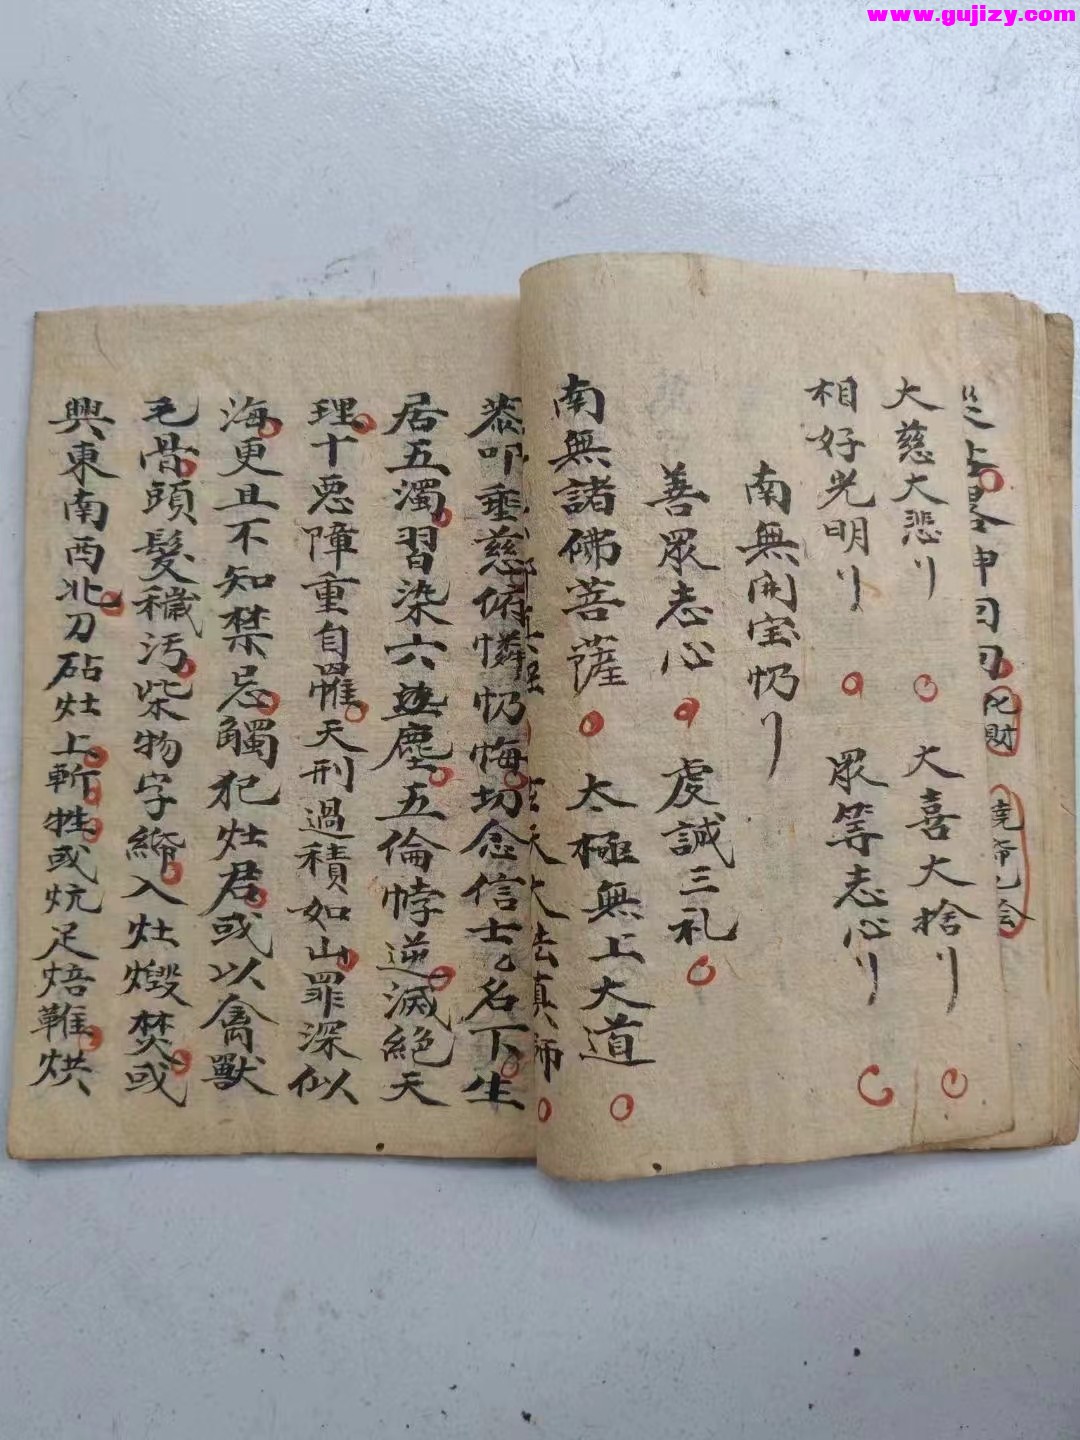 www.gujizy.com
大慈大悲刂 大喜大捨刂
相好光明刂 眾等志心刂
南無開宝忉刂
善眾志心 虔誠三礼
南無諸佛菩薩 太極無上大道
叩垂慈俯憐忉悔切念信士厶名下生
居五濁習染六塵五倫悖逆滅絕天
理十惡障重自罹天刑過積如山罪深似
海更且不知禁忌觸犯灶君或以禽獸
毛骨頭髮穢污柴物字入灶燬焚或
興東南西北刀砧灶上斬牲或炕足焙雞烘